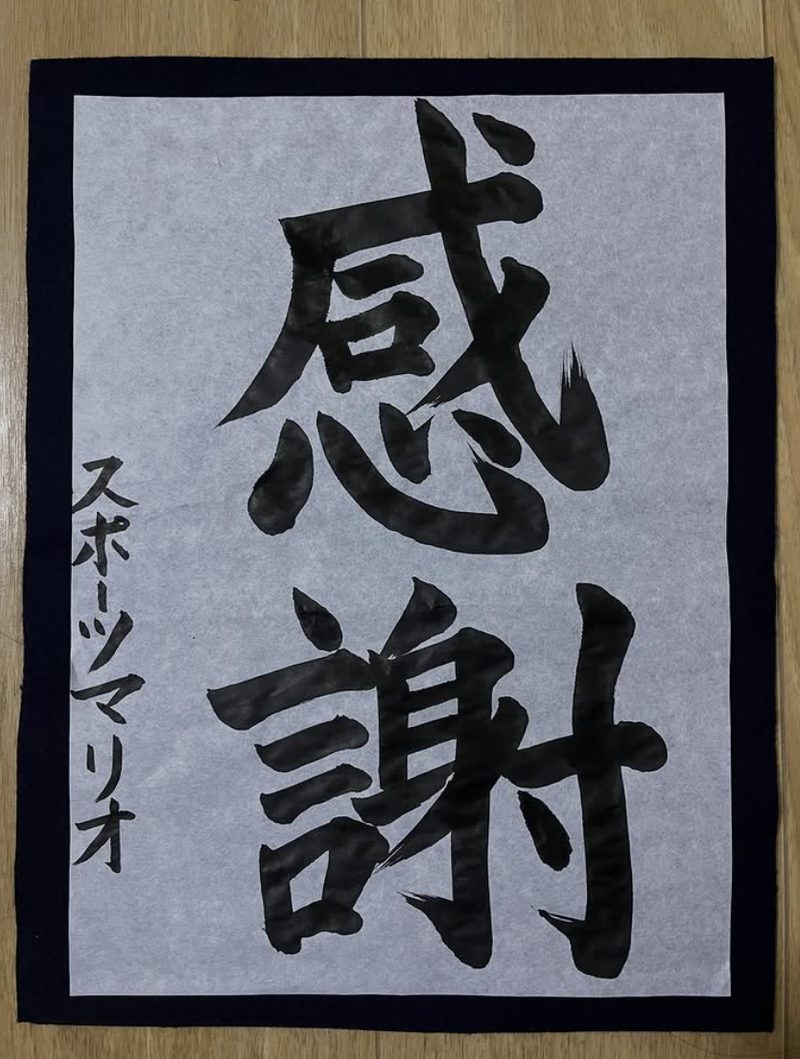 感謝
スポーツマリオ